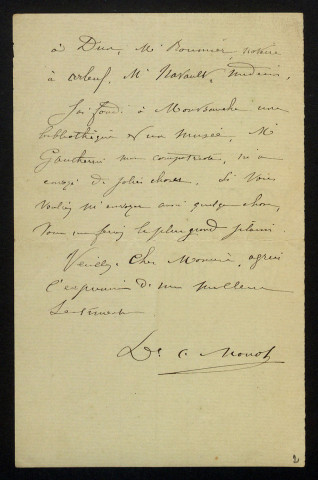 à Dun, Mr Bonnier notaire
à arleuf, Mr Navault, médecin.
J'ai fondé à Montsauche une
bibliothèque & un musée. Mr
Gautherin mon compatriote, m'a
envoyé de jolies choses. Si vous
vouliez m'envoyer aussi quelque chose,
vous me feriez le plus grand plaisir.
Veuillez, Cher Monsieur, agréer
l'expression de mes meilleurs
sentiments
Dr C. Monot
2